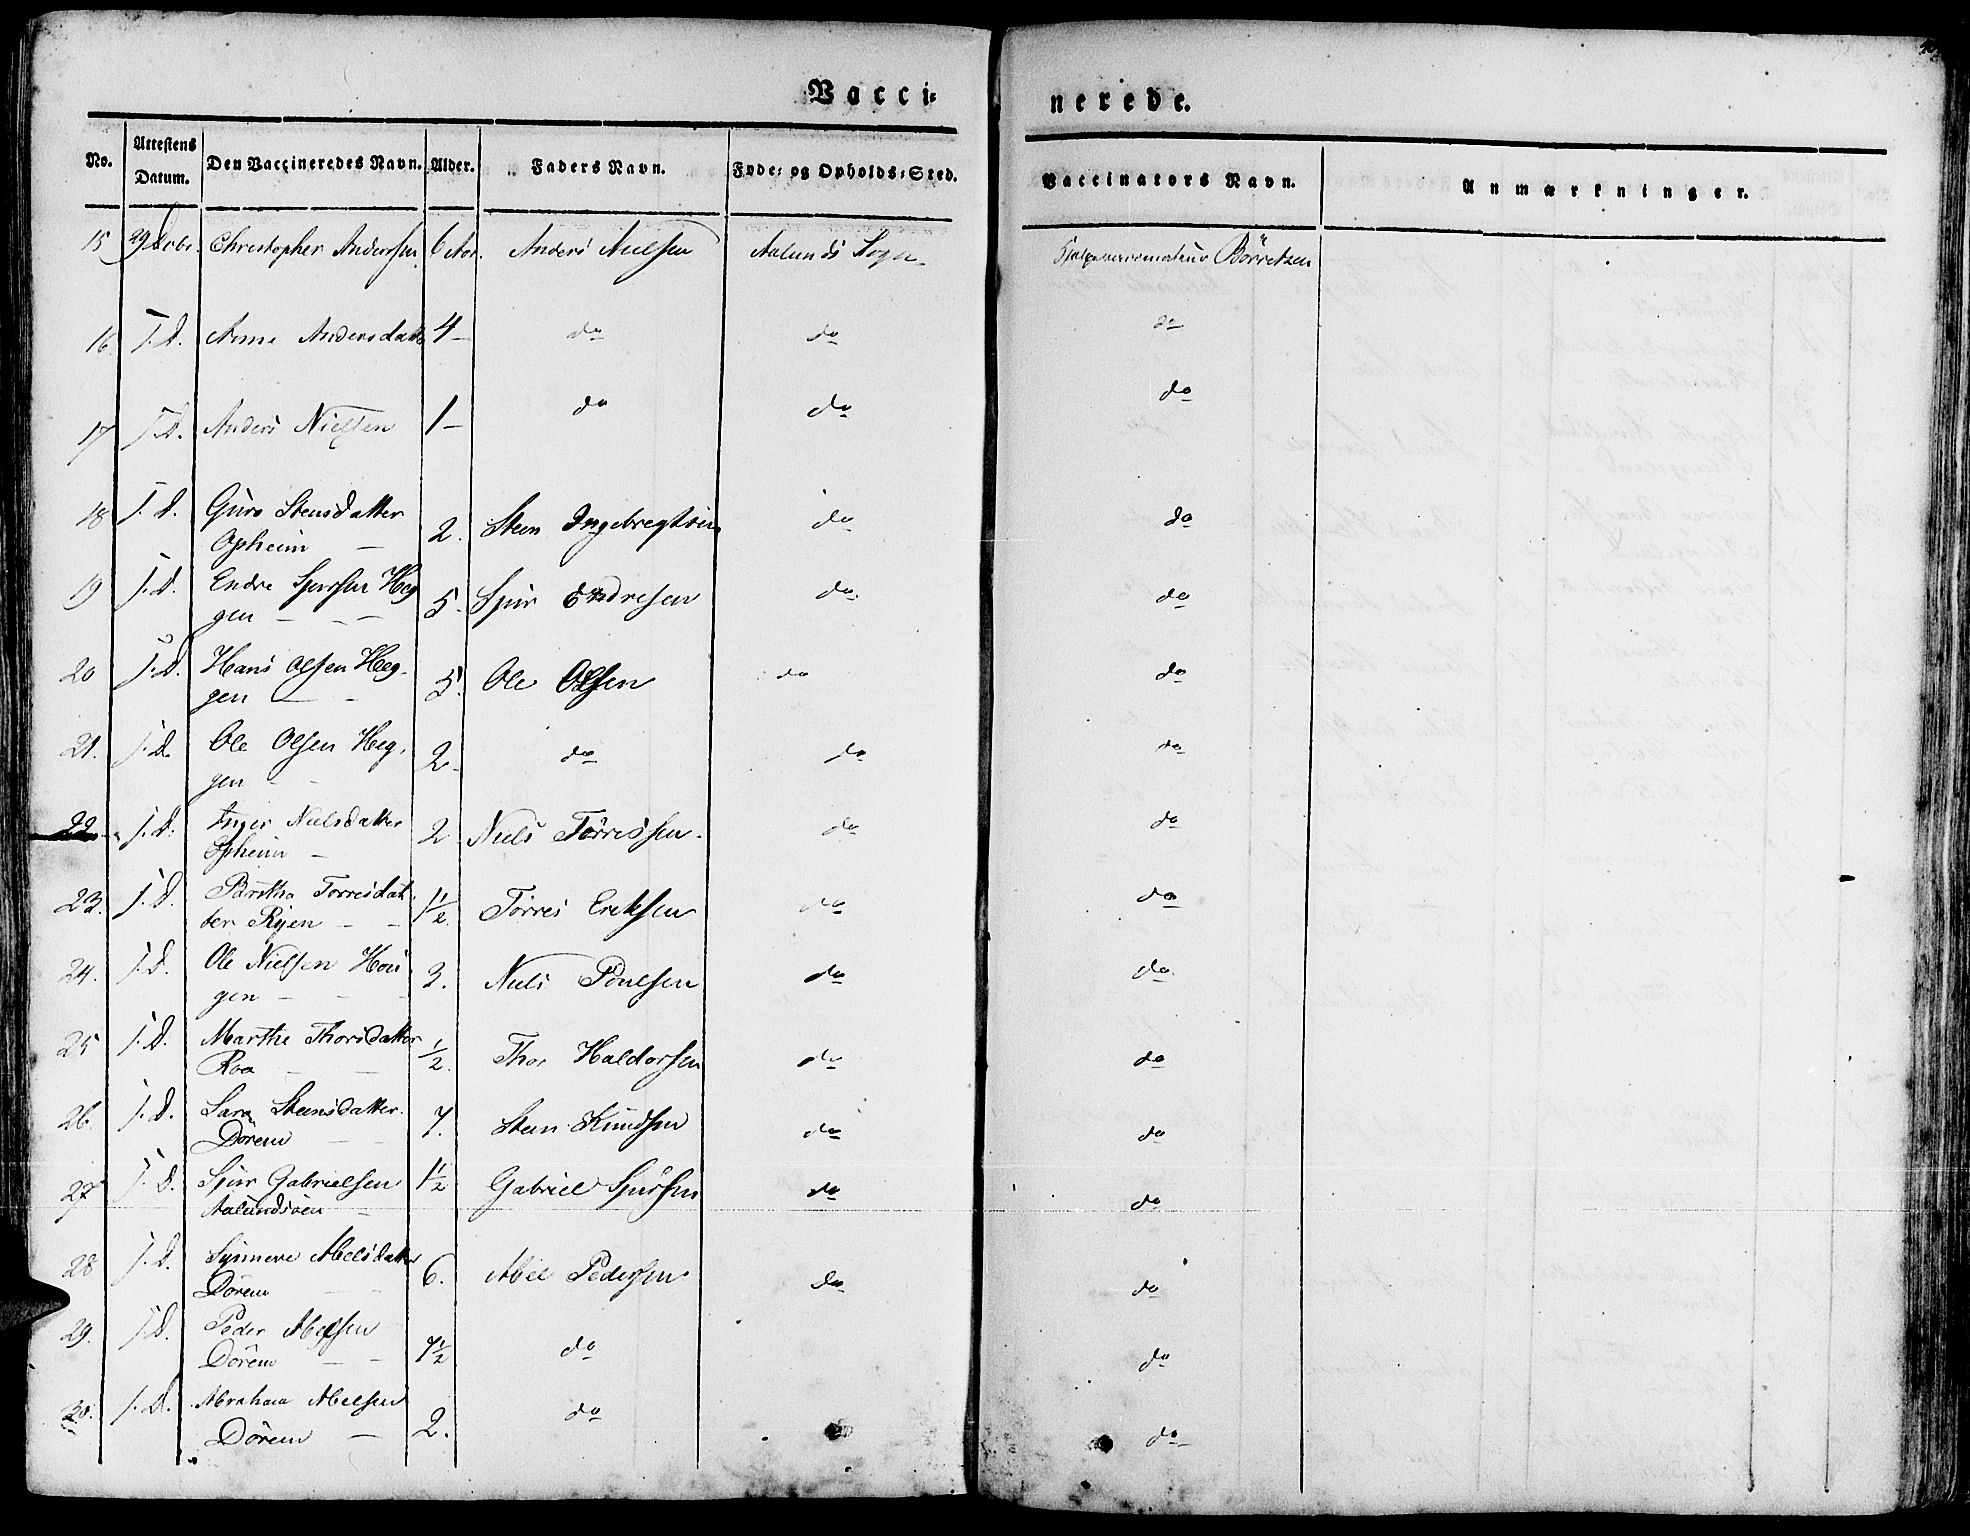 Vacci=
nerede.
No. Attestens Datum. Den Vaccineredes Navn. Alder. Faders Navn. Føde= og Opholds=Sted. Vaccinators Navn. Anmærkninger.
15 29 Christopher Anderssen 6 Aar. Anders Nielsen Aalunds Sogn. Börretzen
16 J. D. Anne Andersdatter 4 – do do do
17 J. D. Anders Nielsen 1 – do do do
18 J. D. Guro Steensdatter 2. Steen Ingebregtsen do do
Opheim –
19 J. D. Endre Spursen Heg 5. Spur Endresen do. do
gen – – –
20 J. D. Hans Olsen Heg- 5. Ole Olsen do do
gen – –
21. J. D. Ole Olsen Heg- 2 – do do do
gen – –
22 J. D. Inger Nielsdatter 2 Niels Torressen. do do
Opheim –
23. J. D. Britha Torresdat 1½ Torres Ericksen do do
ter Ryen – –
24. J. D. Ole Nielsen Hou 3. Niels Poulsen do do.
gen – – –
25 J. D. Marthe Thorsdatter ½. Thor Haldorsen do do
Roa – –
26. J. D. Sara Steensdatter. 7. Steen Knudsen do do
Dörem – –
27 J. D. Spur Gabrielsen 1½ Gabriel Spursen do do
Aalundsöen –
28 J. D. Synneve Abelsdatter 6. Abel Pedersen do do
Dörem – –
29. J. D. Peder Abelsen 7½ do do
Dörem – –
30. J. D. Abraham Abelsen 2. do do
Dörem –